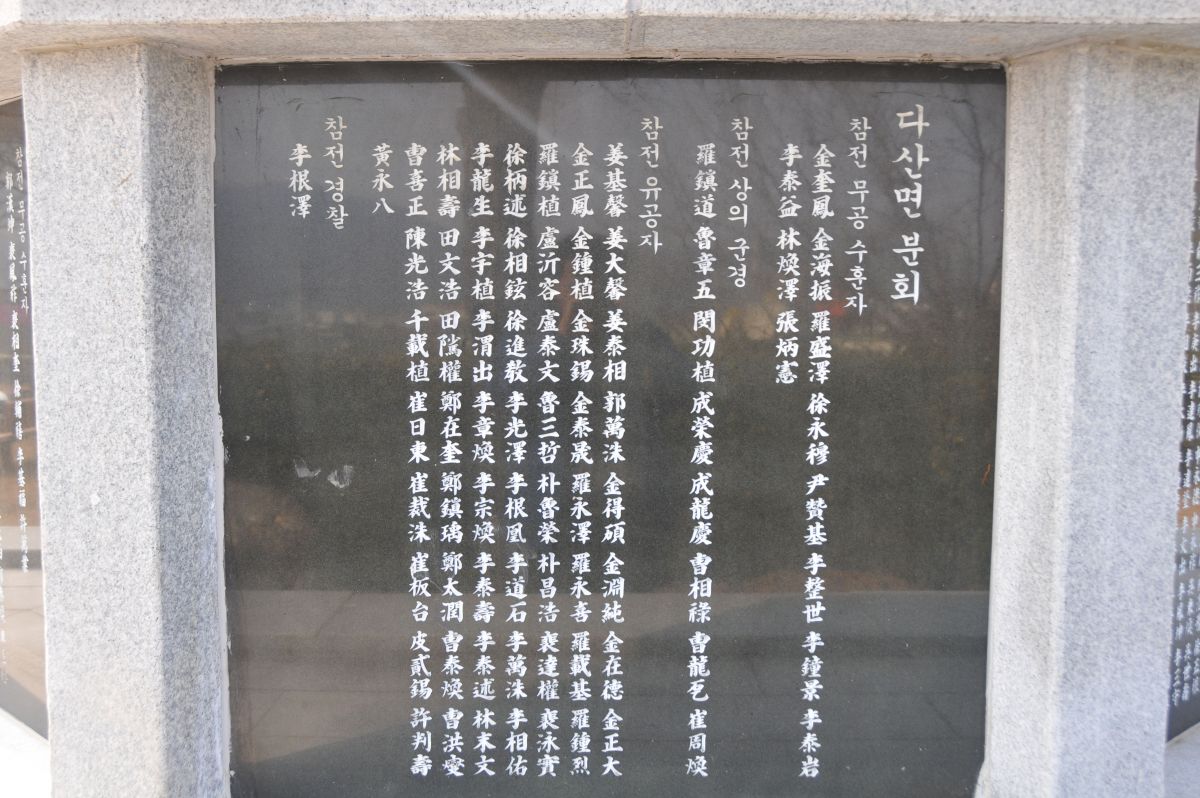 다산면 분회
참전 무공 수훈자
金奎鳳 金海振 羅盛澤 徐永穆 尹贊基 李整世 李鐘景 李泰岩
李泰益 林煥澤 張炳憲
참전 상의 군경
羅鎭道 魯章五 閔功植 成榮慶 成龍慶 曹相祿 曹龍乭 崔周煥
참전 유공자
姜基馨 姜大馨 姜泰相 郭萬洙 金得碩 金淵純 金在德 金正大
金正鳳 金鍾植 金珠錫 金泰晟 羅永澤 羅永喜 羅載基 羅鍾烈
羅鎭植 盧沂容 盧泰文 魯三哲 朴魯榮 朴昌浩 裵達權 裵泳實
徐柄述 徐相鉉 徐進敎 李光澤 李根凰 李道石 李萬洙 李相佑
李龍生 李宇植 李渭出 李章煥 李宗煥 李泰壽 李泰述 林末文
林相壽 田文浩 田隲權 鄭在奎 鄭鎭瑀 鄭太潤 曹泰煥 曹洪燮
曹喜正 陳光浩 千載植 崔日東 崔裁洙 崔板台 皮貳錫 許判壽
黃永八
참전 경찰
李根澤
참전 무공 수훈자